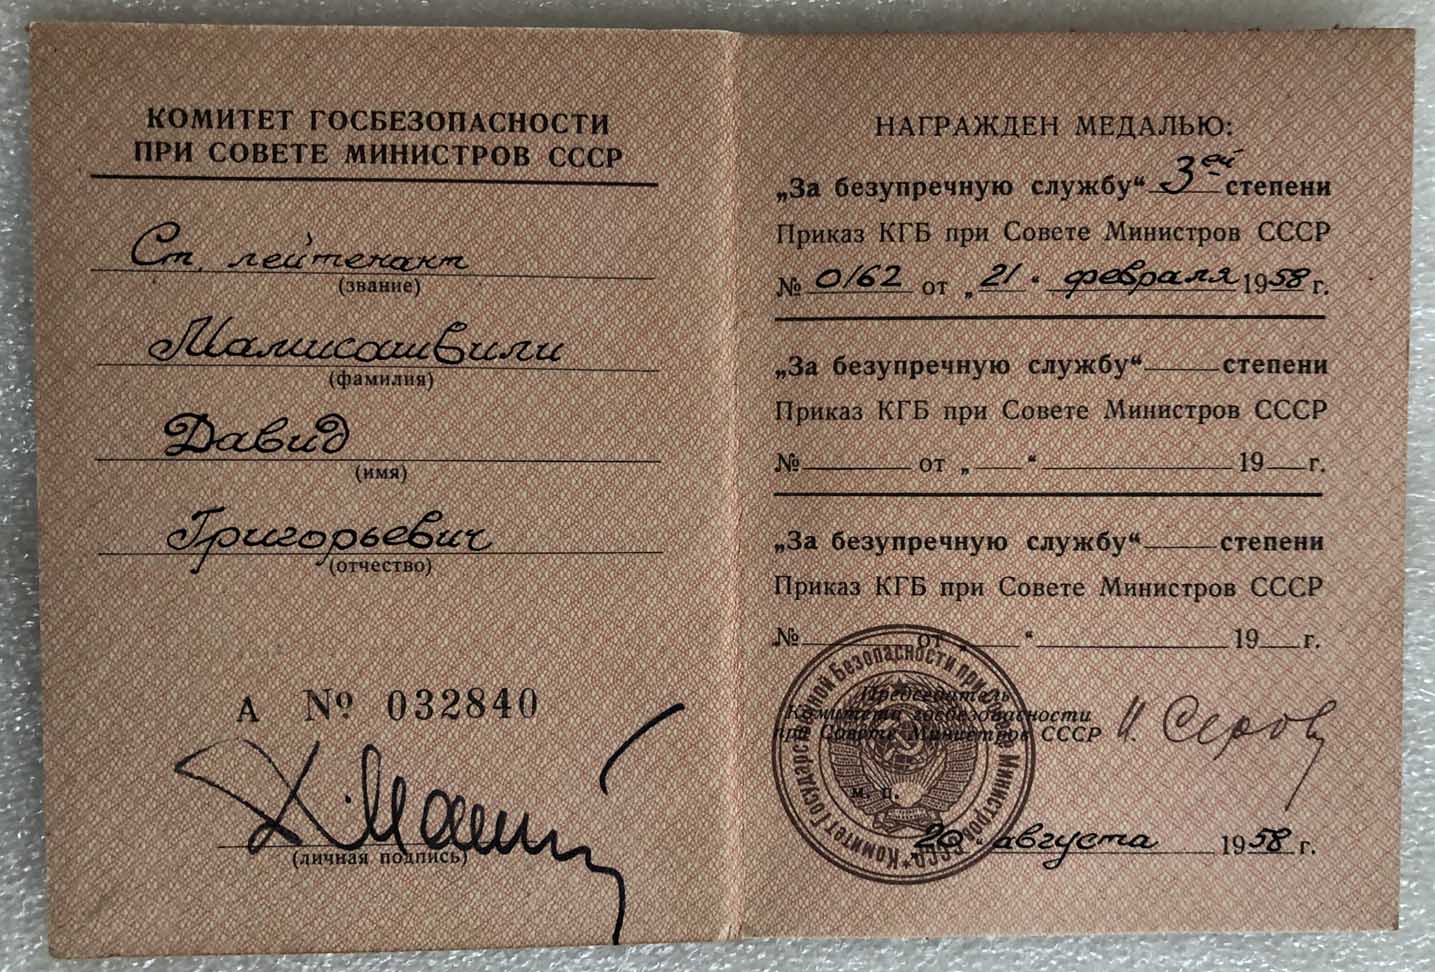 КОМИТЕТ ГОСБЕЗОПАСНОСТИ
ПРИ СОВЕТЕ МИНИСТРОВ СССР
Ст. лейтенант
(звание)
Мамисашвили
(фамилия)
Давид
(имя)
Григорьевич
(отчество)
А № 032840
(личная подпись)
НАГРАЖДЕН МЕДАЛЬЮ:
„За безупречную службу“ 3ей степени
Приказ КГБ при Совете Министров СССР
№ 0162 от „21“ февраля 1958 г.
„За безупречную службу“ степени
Приказ КГБ при Совете Министров СССР
№ от „ “ 19 г.
„За безупречную службу“ степени
Приказ КГБ при Совете Министров СССР
№ от „ “ 19 г.
Председатель
Комитета госбезопасности
при Совете Министров СССР И. Серов
м. п.
„20“ августа 1958 г.
Комитет Государственной Безопасности при Совете Министров СССР